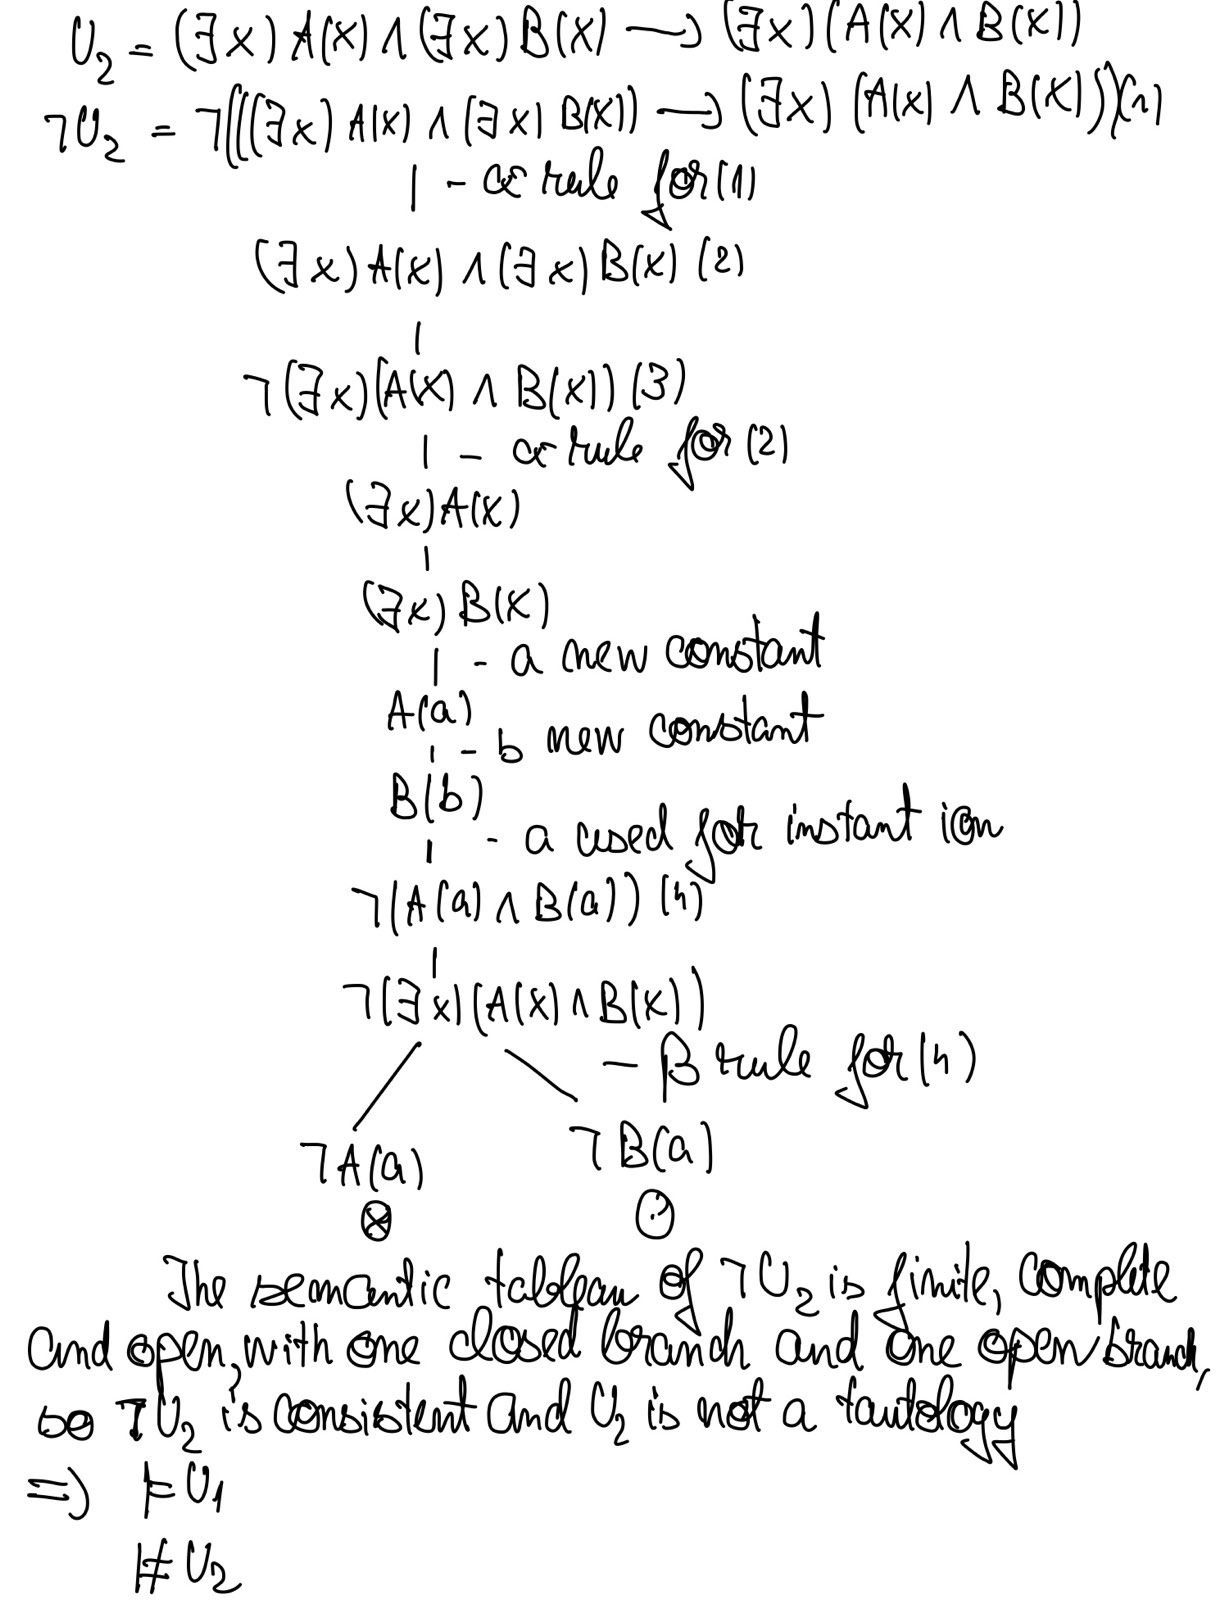 U₂ = (∃x) A(x) ∧ (∃x) B(x) → (∃x) (A(x) ∧ B(x))
¬U₂ = ¬(((∃x) A(x) ∧ (∃x) B(x)) → (∃x) (A(x) ∧ B(x))) (1)
| - α rule for (1)
(∃x) A(x) ∧ (∃x) B(x) (2)
|
¬(∃x) (A(x) ∧ B(x)) (3)
| - α rule for (2)
(∃x) A(x)
|
(∃x) B(x)
| - a new constant
A(a)
| - b new constant
B(b)
| - a used for instant ion
¬(A(a) ∧ B(a)) (4)
|
¬(∃x) (A(x) ∧ B(x))
- β rule for (4)
¬A(a) ¬B(a)
⊗ ⊙
The semantic tableau of ¬U₂ is finite, complete
and open, with one closed branch and one open branch,
so ¬U₂ is consistent and U₂ is not a tautology
=> ⊨ U₁
⊭ U₂